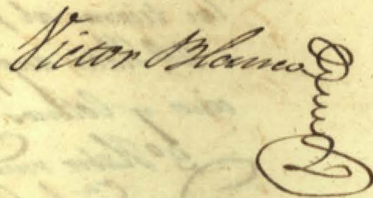 Victor Blanco